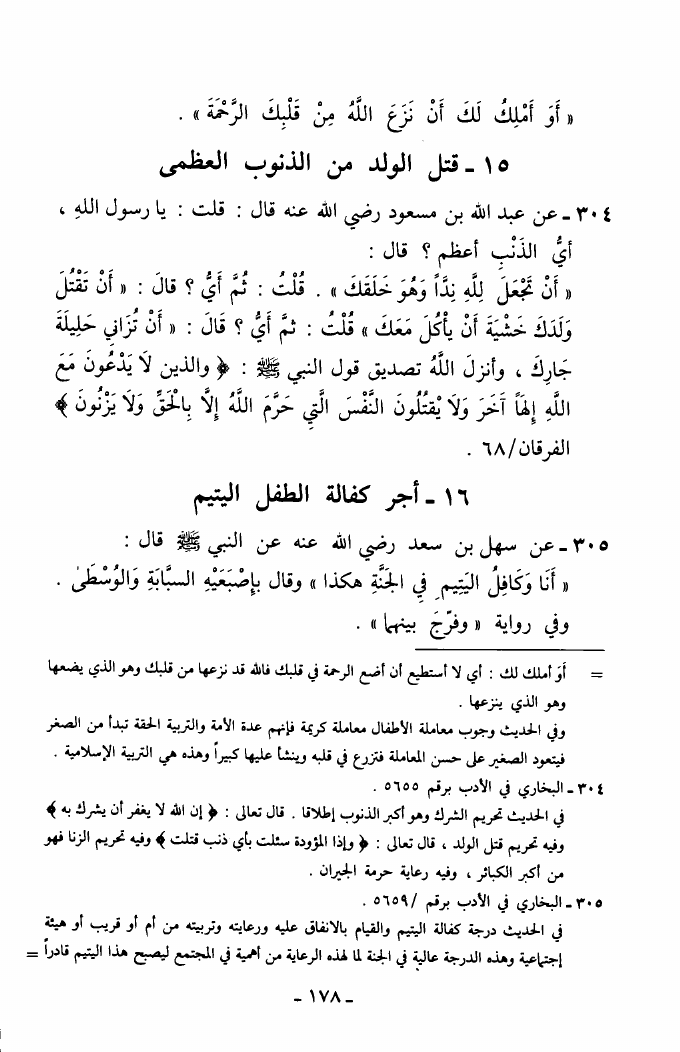 « أَوَ أَمْلِكُ لَكَ أَنْ نَزَعَ اللَّهُ مِنْ قَلْبِكَ الرَّحْمَةَ » .
١٥ - قتل الولد من الذنوب العظمى
٣٠٤ - عن عبد الله بن مسعود رضي الله عنه قال : قلت : يا رسول اللهِ ،
أيُّ الذَنْبِ أعظم ؟ قال :
« أَنْ تَجْعَلَ لِلَّهِ نِدَّاً وَهُوَ خَلَقَكَ » . قُلْتُ : ثُمَّ أَيُّ ؟ قالَ : « أَنْ تَقْتُلَ
وَلَدَكَ خَشْيَةَ أَنْ يأْكُلَ مَعَكَ » قُلْتُ : ثمَّ أَيُّ ؟ قَالَ : « أَنْ تُزَاني حَلِيلَةَ
جَارِكَ ، وأنزلَ اللَّهُ تصديق قول النبي ﷺ : ﴿ والذين لاَ يَدْعُونَ مَعَ
اللَّهِ إِلهَاً آخَرَ وَلاَ يْقتُلُونَ النَّفْسَ الَّتِي حَرَّمَ اللَّهُ إِلَّا بِالْحَقِّ وَلاَ يَزْنُونَ ﴾
الفرقان/٦٨ .
١٦ - أجر كفالة الطفل اليتيم
٣٠٥ - عن سهل بن سعد رضي الله عنه عن النبي ﷺ قال :
« أَنَا وَكَافِلُ اليَتِيمِ فِي الجَنَّةِ هكذا » وقال بإِصْبَعَيْهِ السبَّابَةِ وَالُوُسْطَىٰ .
وفي رواية « وفرَّجَ بينهما » .
= أَوَ أملك لك : أي لا أستطيع أن أضع الرحمة في قلبك فالله قد نزعها من قلبك وهو الذي يضعها
وهو الذي ينزعها .
وفي الحديث وجوب معاملة الأطفال معاملة كريمة فإنهم عدة الأمة والتربية الحقة تبدأ من الصغر
فيتعود الصغير على حسن المعاملة فتزرع في قلبه وينشأ عليها كبيراً وهذه هي التربية الإسلامية .
٣٠٤ - البخاري في الأدب برقم ٥٦٥٥ .
في الحديث تحريم الشرك وهو أكبر الذنوب إطلاقا . قال تعالى : ﴿ إن الله لا يغفر أن يشرك به ﴾
وفيه تحريم قتل الولد ، قال تعالى : ﴿ وإذا المؤودة سئلت بأي ذنب قتلت ﴾ وفيه تحريم الزنا فهو
من أكبر الكبائر ، وفيه رعاية حرمة الجيران .
٣٠٥ - البخاري في الأدب برقم /٥٦٥٩ .
في الحديث درجة كفالة اليتيم والقيام بالانفاق عليه ورعايته وتربيته من أم أو قريب أو هيئة
إجتماعية وهذه الدرجة عالية في الجنة لما لهذه الرعاية من أهمية في المجتمع ليصبح هذا اليتيم قادراً =
- ١٧٨ -